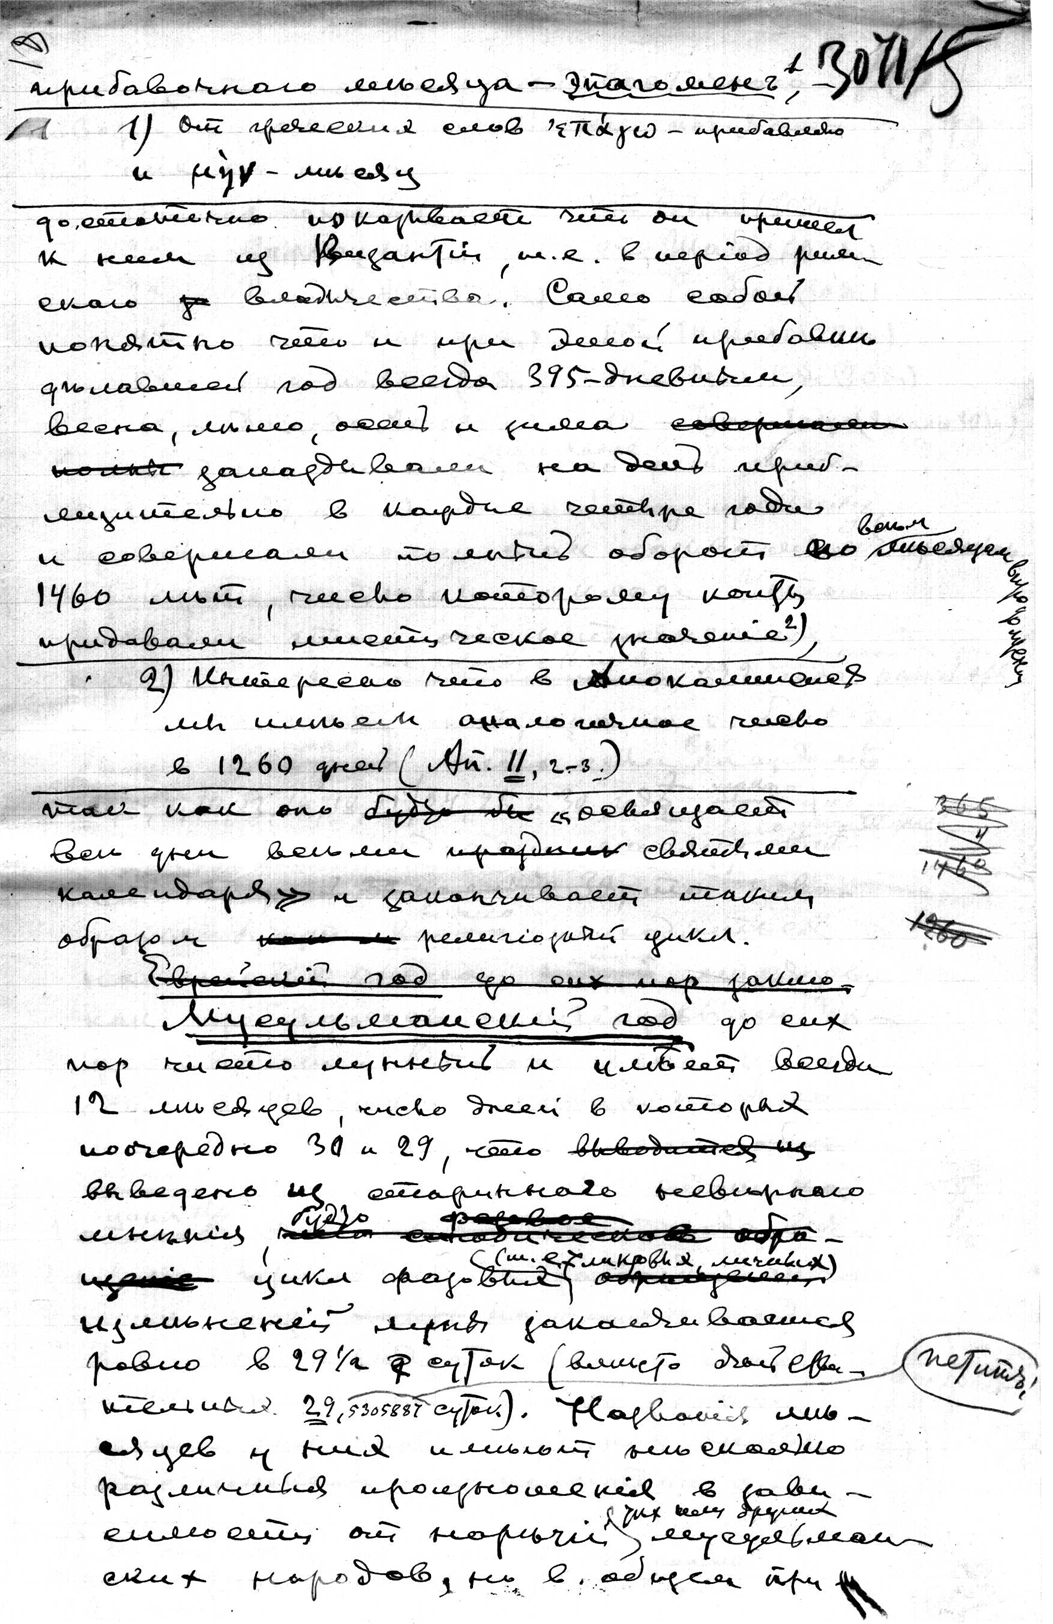 18
прибавочнаго мѣсяца — Эпагоменъ¹,
1) От греческих слов ἐπάγω — прибавляю
и μὴν — мѣсяц
достаточно показывает что он пришел
к ним из Византіи, т.е. в період рим-
скаго владычества. Само собой
понятно что и при этой прибавкѣ
дѣлавшей год всегда 395-дневным,
весна, лѣто, осень и зима совершали
полный запаздывали на день приб-
лизительно в каждые четыре года
и совершали полный оборот по всѣм мѣсяцам
в продолжении
1460 лѣт, число которому копты
придавали мистическое значеніе²),
2) Интересно что в Апокалипсисѣ
мы имѣем аналогичное число
в 1260 дней (Ап. 11, 2-3.)
так как оно будто бы „освящает
всѣ дни всѣми праздник святыми
календаря» и заканчивает таким
образом религіозный цикл.
365
4
1460
1260
Еврейскій год до сих пор
Мусульманскій год до сих
пор чисто лунный и имѣет всегда
12 мѣсяцев, число дней в которых
поочередно 30 и 29, что выводится из
выведено из старинного невѣрного
мнѣнія, будто
цикл фазовых (т.е. ликовых, личных)
измѣненій луны заканчивается
ровно в 29 1/2 суток (вмѣсто дѣйстви-
тельных 29,5305887 суток). Названія мѣ-
петитъ
сяцев у них имѣют нѣсколько
различныя произношенія в зави-
симости от нарѣчій тѣх или других мусульман-
ских народов, но в общем при